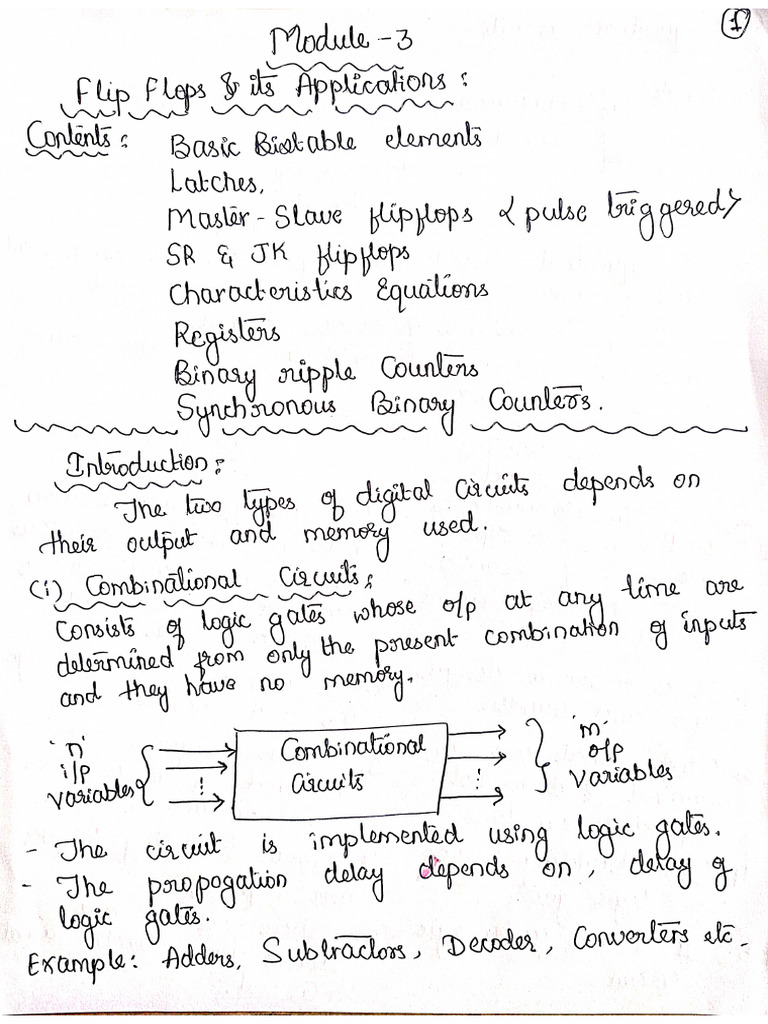 1
Module - 3
Flip Flops & its Applications :
Contents : Basic Bistable elements
Latches,
Master - Slave flipflops < pulse triggered >
SR & JK flipflops
Characteristics Equations
Registers
Binary ripple Counters
Synchronous Binary Counters.
Introduction :
The two types of digital circuits depends on
their output and memory used.
(i) Combinational Circuits :
Consists of logic gates whose o/p at any time are
determined from only the present combination of inputs
and they have no memory.
'n'
i/p
variables
Combinational
Circuits
'm'
o/p
variables
- The circuit is implemented using logic gates.
- The propogation delay depends on, delay of
logic gates.
Example : Adders, Subtractors, Decoder, Converters etc.